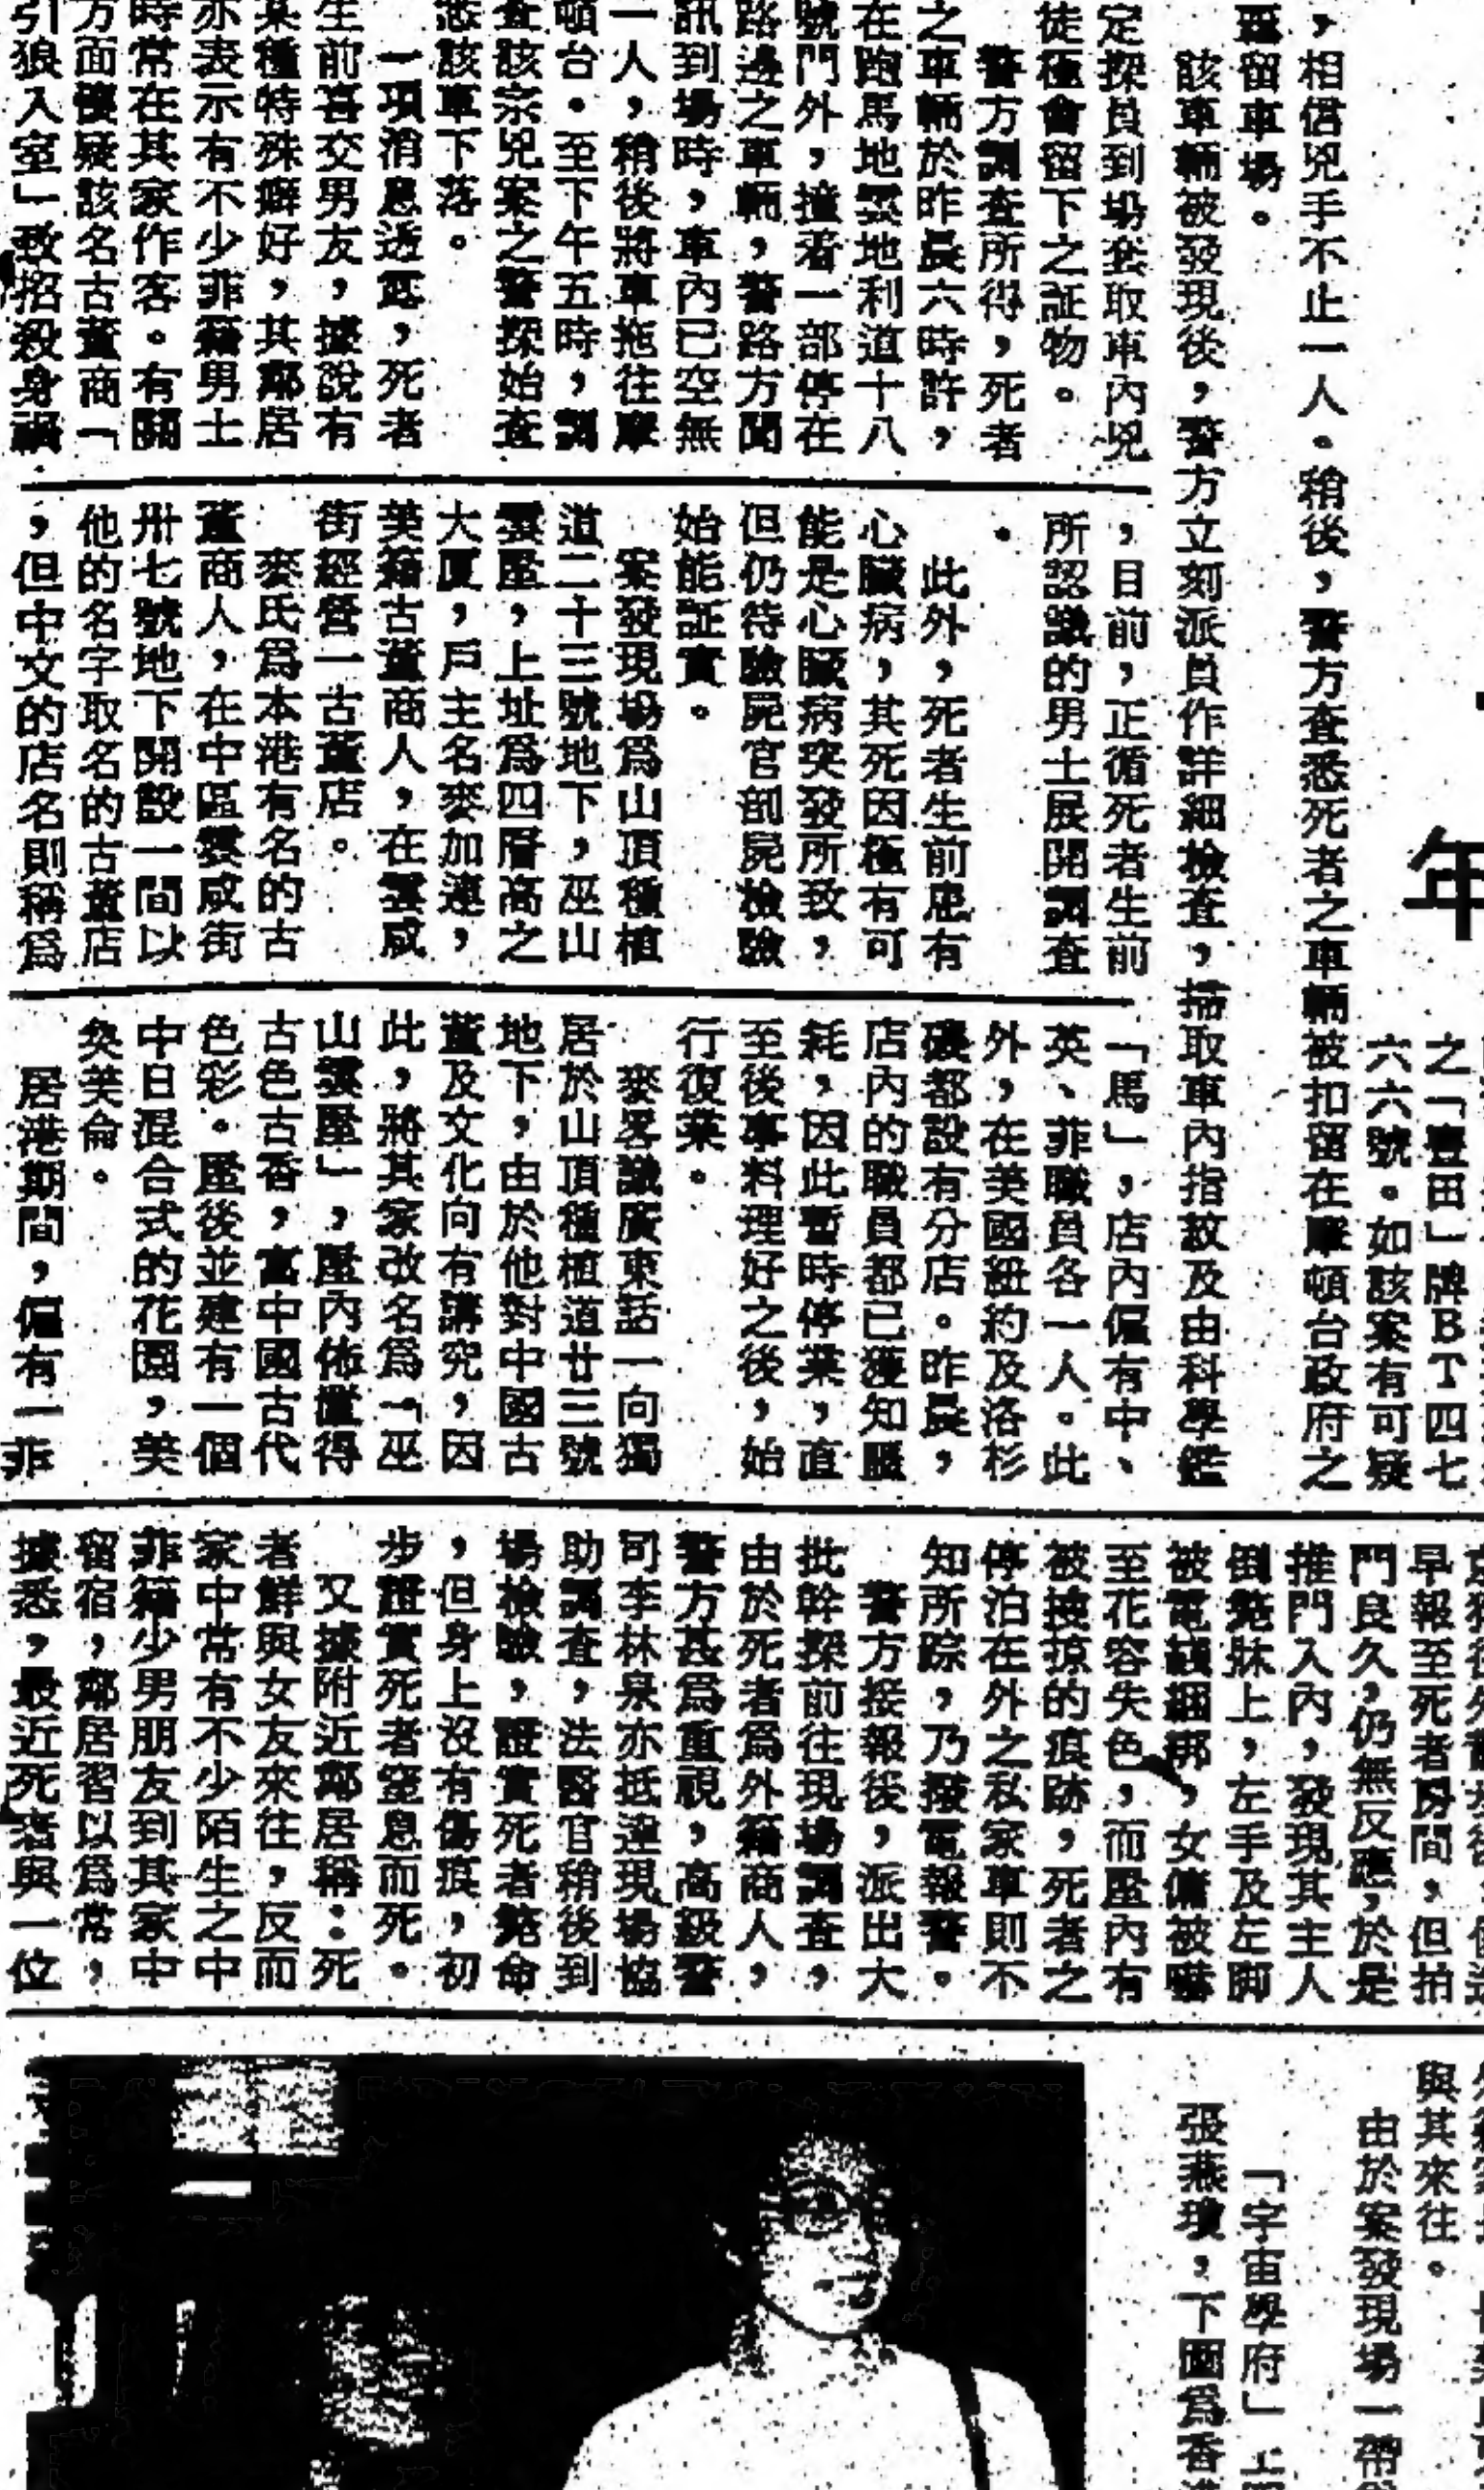 年
之「豐田」牌ＢＴ四七
六六號。如該案有可疑
，相信兇手不止一人。稍後，警方查悉死者之車輛被扣留在摩頓台政府之
留車場。
該車輛被發現後，警方立刻派員作詳細檢查，掃取車內指紋及由科學鑑
定探員到場套取車內兇
徒極會留下之証物。
警方調查所得，死者
之車輛於昨晨六時許，
在跑馬地雲地利道十八
號門外，撞着一部停在
路邊之車輛，警路方聞
訊到場時，車內已空無
一人，稍後將車拖往摩
頓台。至下午五時，調
查該宗兇案之警探始查
悉該車下落。
一項消息透露，死者
生前喜交男友，據說有
某種特殊癖好，其鄰居
亦表示有不少菲籍男士
時常在其家作客。有關
方面懷疑該名古董商「
引狼入室」致招殺身禍
，目前，正循死者生前
所認識的男士展開調查
。
此外，死者生前患有
心臟病，其死因極有可
能是心臟病突發所致，
但仍待驗屍官剖屍檢驗
始能証實。
案發現場為山頂種植
道二十三號地下，巫山
雲屋，上址為四層高之
大厦，戶主名麥加連，
美籍古董商人，在雲咸
街經營一古董店。
麥氏為本港有名的古
董商人，在中區雲咸街
卅七號地下開設一間以
他的名字取名的古董店
，但中文的店名則稱為
「馬」，店內僱有中、
英、菲職員各一人。此
外，在美國紐約及洛杉
磯都設有分店。昨晨，
店內的職員都已獲知噩
耗，因此暫時停業，直
至後事料理好之後，始
行復業。
麥畧識廣東話一向獨
居於山頂種植道廿三號
地下，由於他對中國古
董及文化向有講究，因
此，將其家改名為「巫
山雲屋」，屋內佈置得
古色古香，富中國古代
色彩。屋後並建有一個
中日混合式的花園，美
奐美侖。
居港期間，僱有一菲
早報至死者房間，但拍
門良久，仍無反應，於是
推門入內，發現其主人
倒斃牀上，左手及左脚
被電線綑綁，女傭被嚇
至花容失色，而屋內有
被搜掠的痕跡，死者之
停泊在外之私家車則不
知所踪，乃撥電報警。
警方接報後，派出大
批幹探前往現場調查，
由於死者為外籍商人，
警方甚為重視，高級警
司李林泉亦抵達現場協
助調查，法醫官稍後到
場檢驗，證實死者斃命
，但身上沒有傷痕，初
步證實死者窒息而死。
又據附近鄰居稱：死
者鮮與女友來往，反而
家中常有不少陌生之中
菲籍少男朋友到其家中
留宿，鄰居習以為常，
據悉，最近死者與一位
與其來往。
由於案發現場一帶
「宇宙學府」上
張燕瓊，下圖為香港